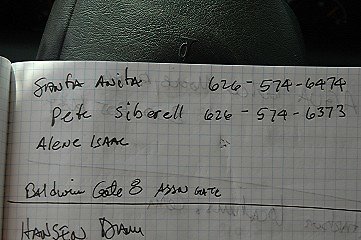 Santa Anita 626-574-6474
Pete Siberell 626-574-6373
Alene Isaac
Baldwin Gate 8
Hansen Dam